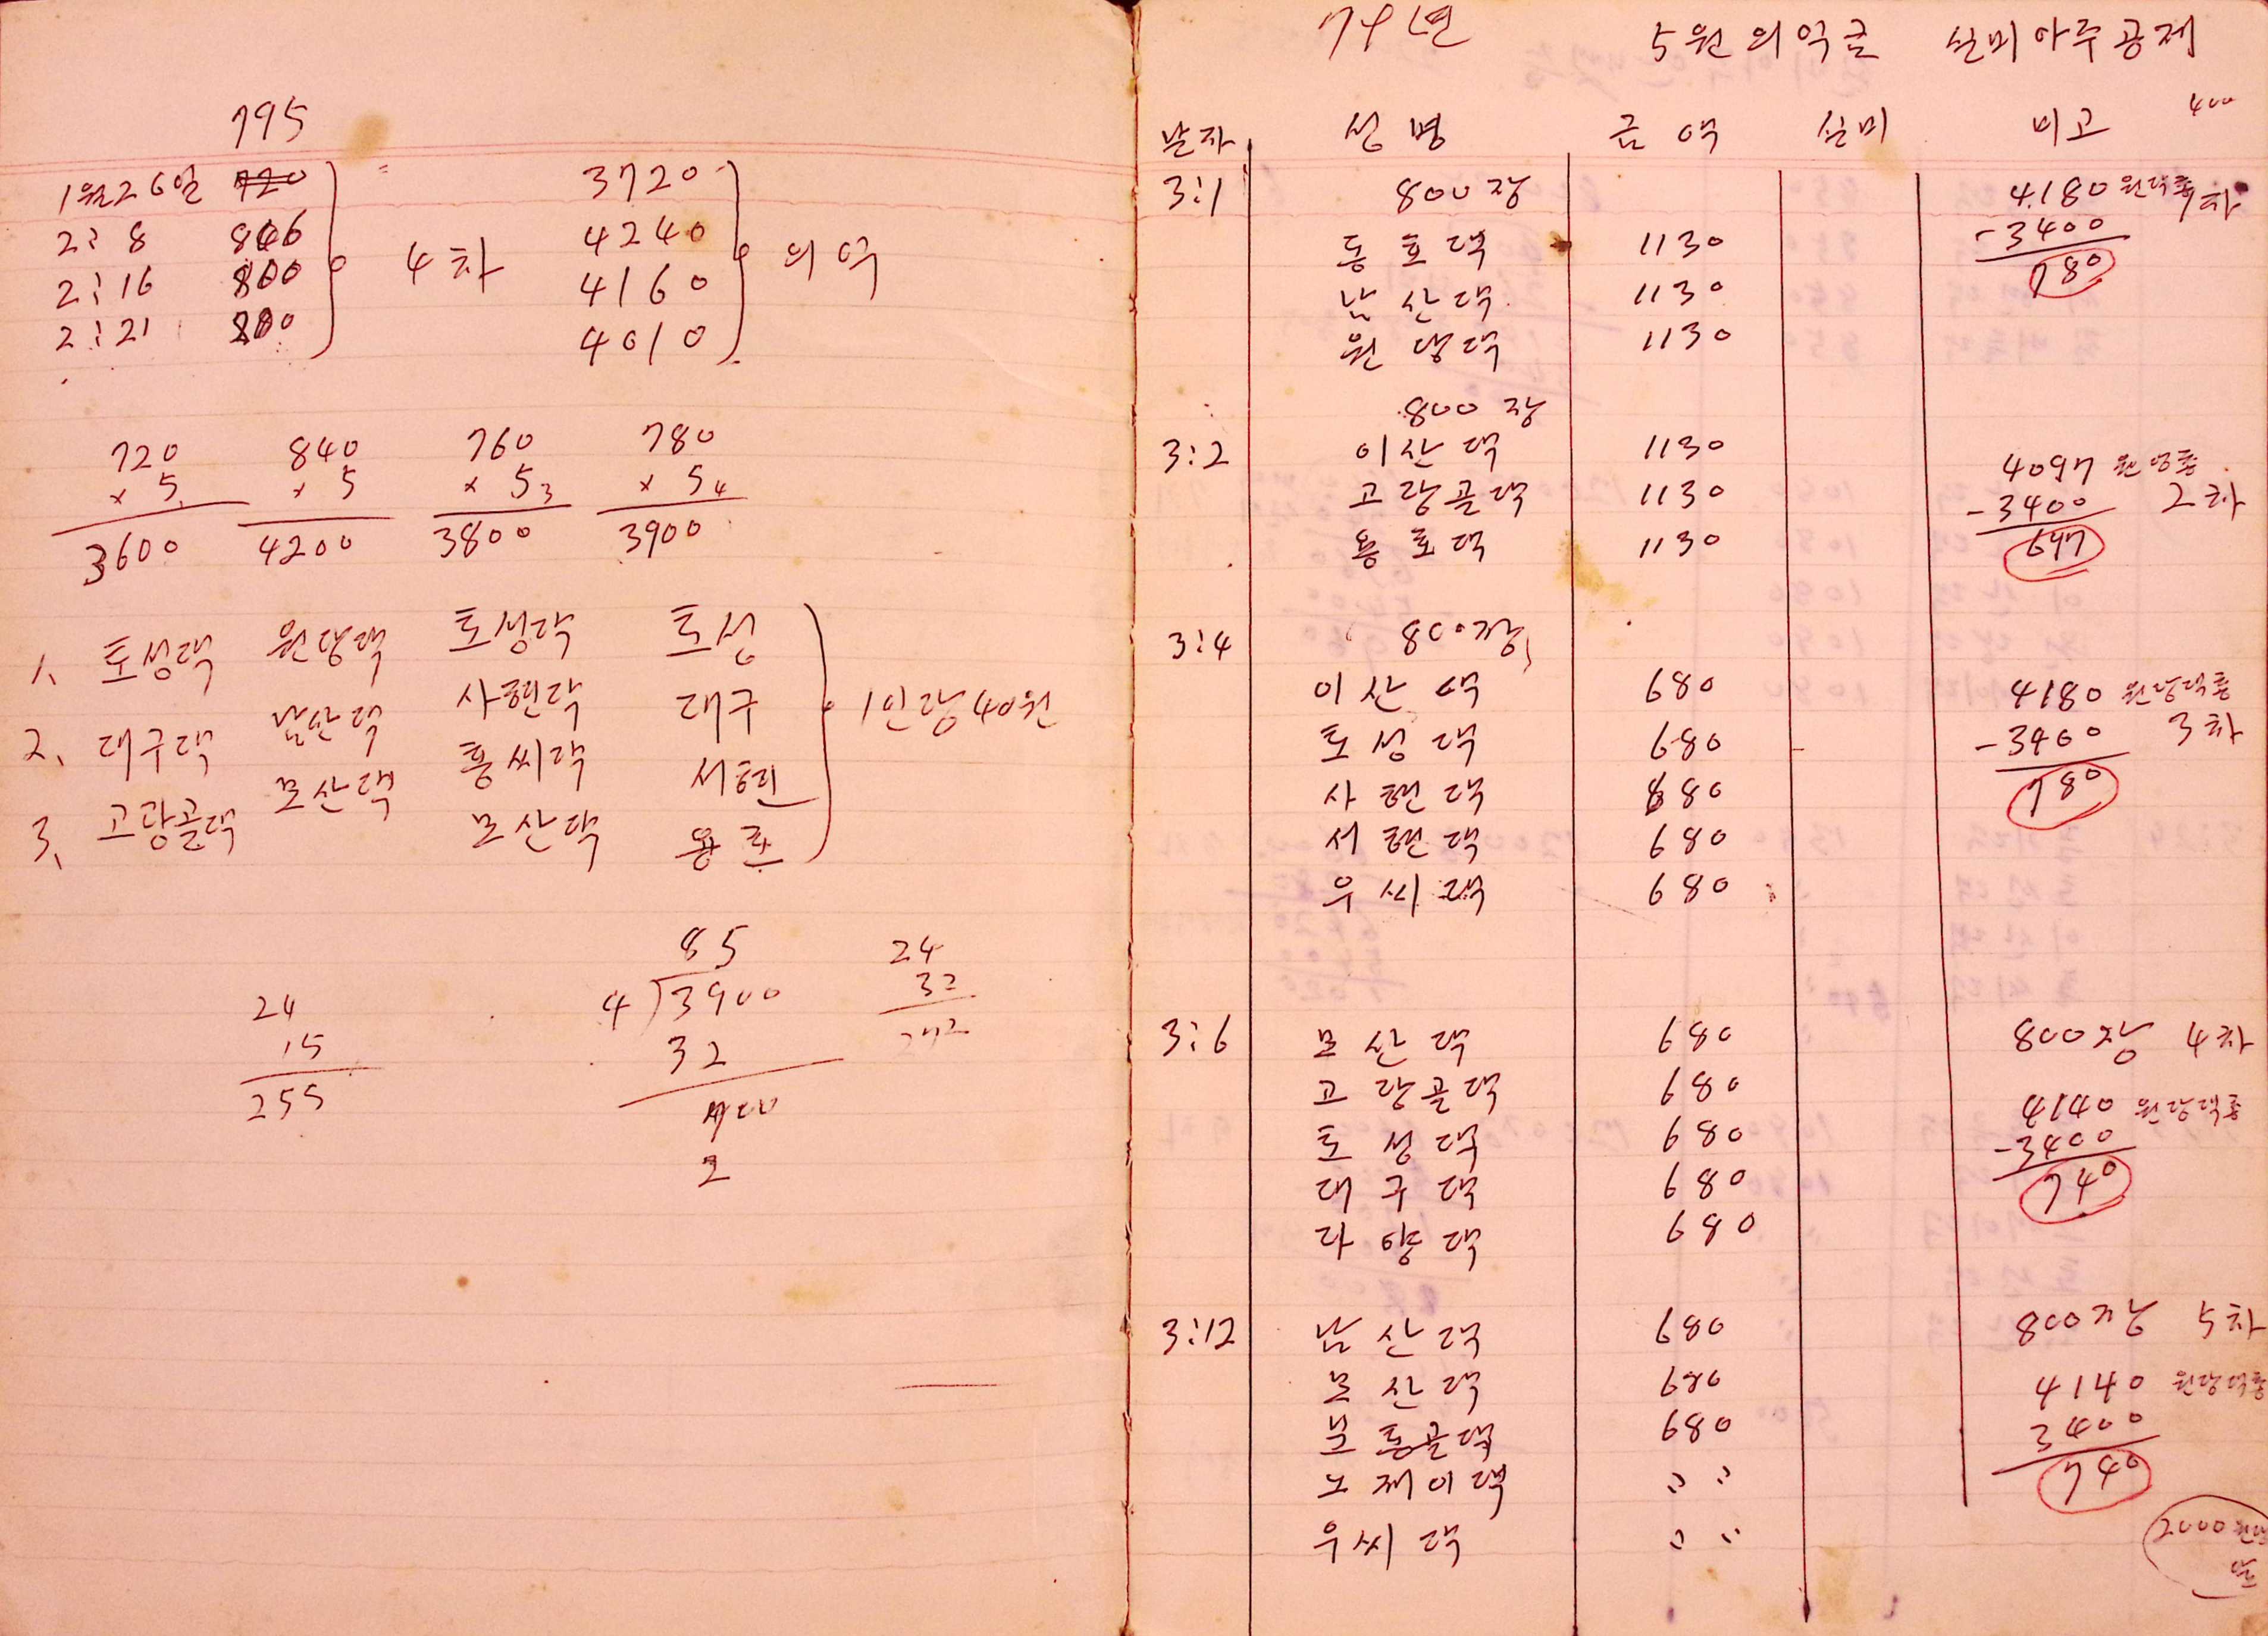 795
1월26일 720
2:8 846
2:16 800
2:21 800
4차
3720
4240
4160
4010
의역
720 840 760 780
× 5 × 5 × 5 3 × 5 4
3600 4200 3800 3900
1、 토성댁 원당댁 토성댁 토성
2、 대구댁 남산댁 사현댁 대구
3、 고랑골댁 모산댁 홍씨댁 서현
모산댁 용호
1인랑40원
24
15
255
85
4 3900
32
700
2
24
32
272
74년 5원의역금 실미아주공제
400
날자 성명 금액 실미 비고
3:1 800장 4180 1차
동호댁 1130 -3400
남산댁 1130 780
원당댁 1130
800장
3:2 이산댁 1130 4097
고랑골댁 1130 -3400 2차
용호댁 1130 697
3:4 800장
이산댁 680 4180 원당댁
토성댁 680 -3400 3차
사현댁 680 780
서현댁 680
우씨댁 680
3:6 모산댁 680 800장 4차
고랑골댁 680 4140 원당댁
토성댁 680 -3400
대구댁 680 740
다양댁 680
3:12 남산댁 680 800장 5차
모산댁 680 4140 원당댁
동골댁 680 3400
노재이댁 〃 〃 740
우씨댁 〃 〃
2000